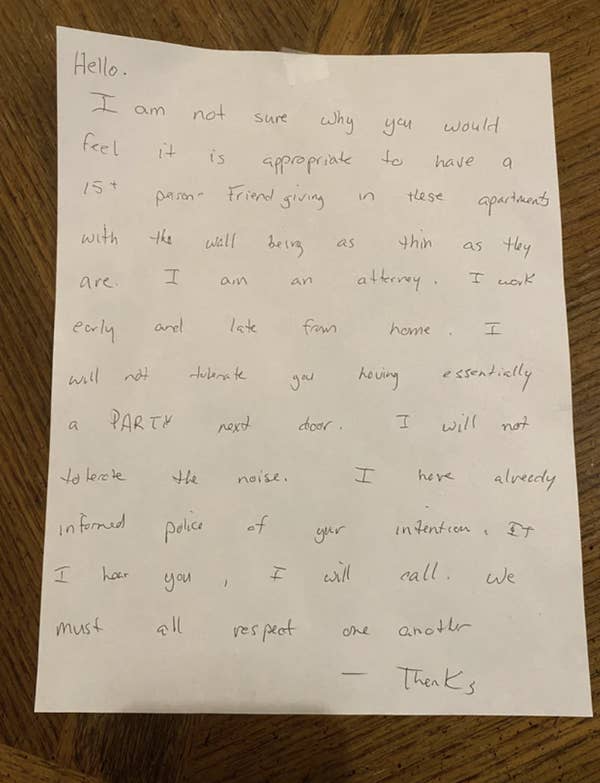 Hello.
I am not sure why you would
feel it is appropriate to have a
15+ person- Friend giving in these apartments
with the wall being as thin as they
are. I am an attorney. I work
early and late from home. I
will not tolerate you having essentially
a PARTY next door. I will not
tolerate the noise. I have already
informed police of your intention. If
I hear you, I will call. We
must all respect one another
— Thanks